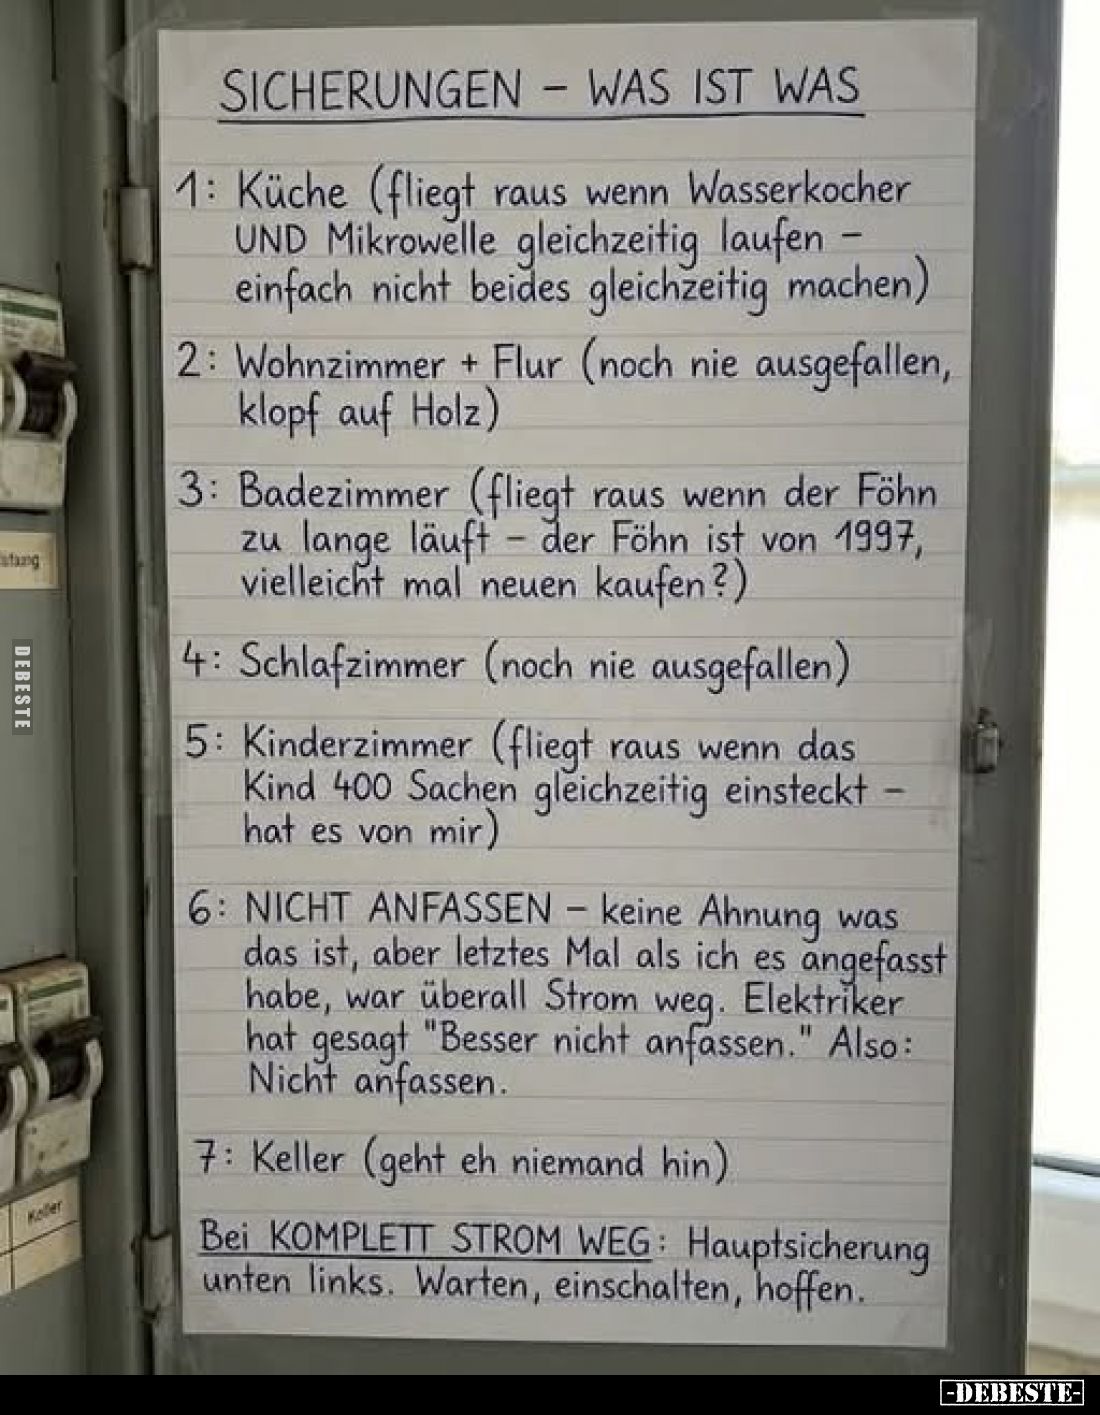 SICHERUNGEN – WAS IST WAS
1: Küche (fliegt raus wenn Wasserkocher
UND Mikrowelle gleichzeitig laufen –
einfach nicht beides gleichzeitig machen)
2: Wohnzimmer + Flur (noch nie ausgefallen,
klopf auf Holz)
3: Badezimmer (fliegt raus wenn der Föhn
zu lange läuft – der Föhn ist von 1997,
vielleicht mal neuen kaufen?)
4: Schlafzimmer (noch nie ausgefallen)
5: Kinderzimmer (fliegt raus wenn das
Kind 400 Sachen gleichzeitig einsteckt –
hat es von mir)
6: NICHT ANFASSEN – keine Ahnung was
das ist, aber letztes Mal als ich es angefasst
habe, war überall Strom weg. Elektriker
hat gesagt "Besser nicht anfassen." Also:
Nicht anfassen.
7: Keller (geht eh niemand hin)
Bei KOMPLETT STROM WEG: Hauptsicherung
unten links. Warten, einschalten, hoffen.
DEBESTE
-DEBESTE-